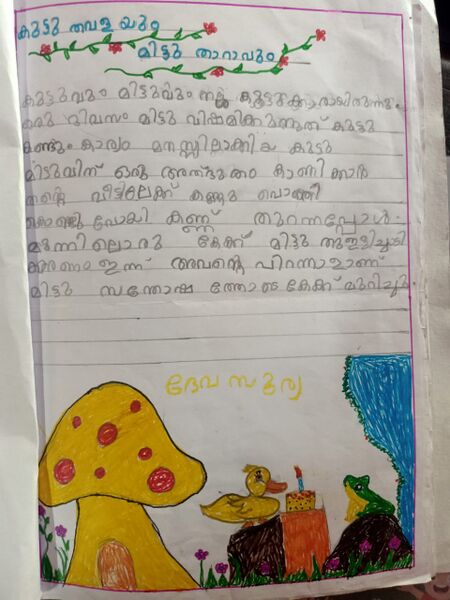 കുട്ടു തവളയും
മിട്ടു താറാവും
കുട്ടുവും മിട്ടുവും നല്ല കൂട്ടുക്കാരായിരുന്നു.
ഒരു ദിവസം മിട്ടു വിഷമിക്കുന്നത് കുട്ടു
കണ്ടും കാര്യം മനസ്സിലാക്കിയ കുട്ടു
മിട്ടുവിന് ഒരു അത്ഭുതം കാണിക്കാൻ
തന്റെ വീട്ടിലേക്ക് കണ്ണു പൊത്തി
കൊണ്ടുപോയി കണ്ണ് തുറന്നപ്പോൾ.
മുന്നിലൊരു കേക്ക് മിട്ടു തുള്ളിച്ചാടി
കാരണം ഇന്ന് അവന്റെ പിറന്നാളാണ്
മിട്ടു സന്തോഷത്തോടെ കേക്ക് മുറിച്ചു.
ദേവസൂര്യ